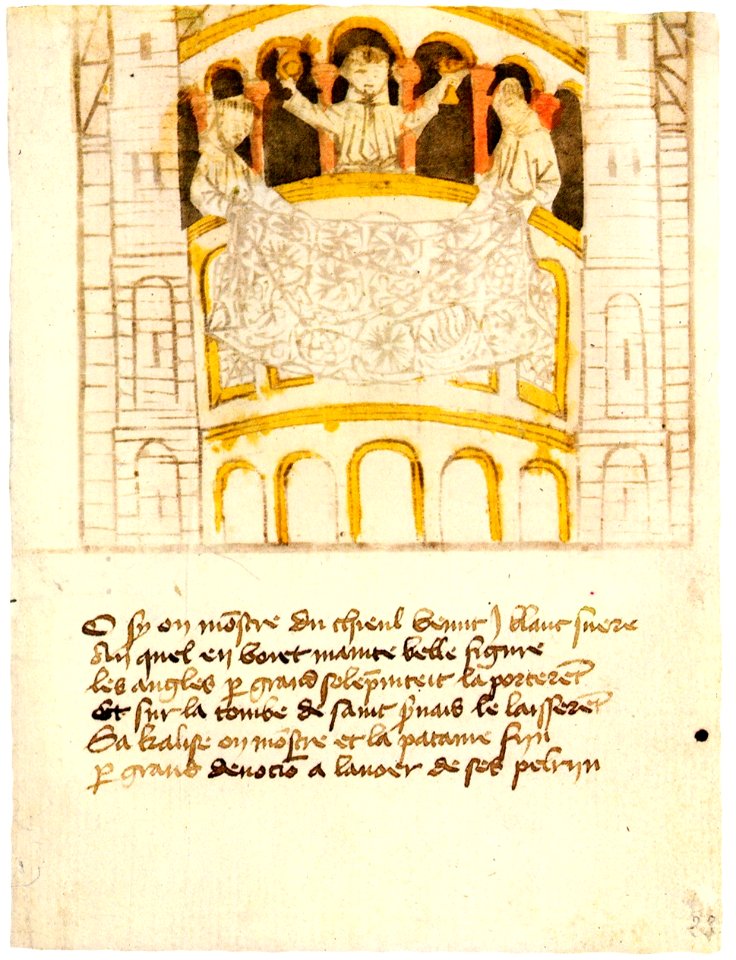 O sy on mõstre du chieul venut j blanc suere
Au quel en voiet mainte belle figure
les angles ꝑ grand solep̃niteit la porterẽt
Et sur la tombe de saint ẜuais le laisserẽt
Sa kalise on mõstre et la patanie fyn
ꝑ grand deuociõ a lauoer de ses pelryn
23